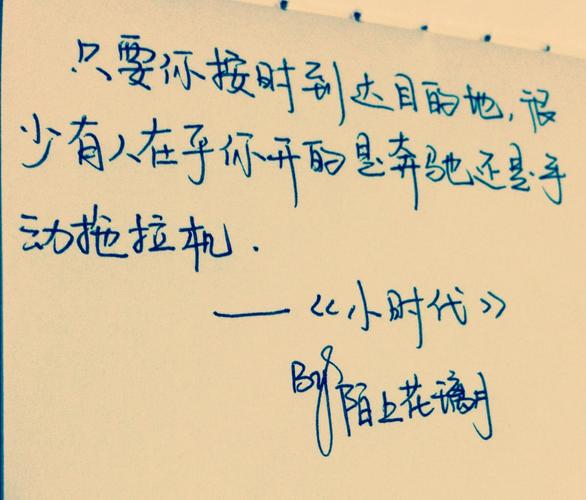 只要你按时到达目的地，很
少有人在乎你开的是奔驰还是手
动拖拉机．
——《小时代》
By 陌上花璃月